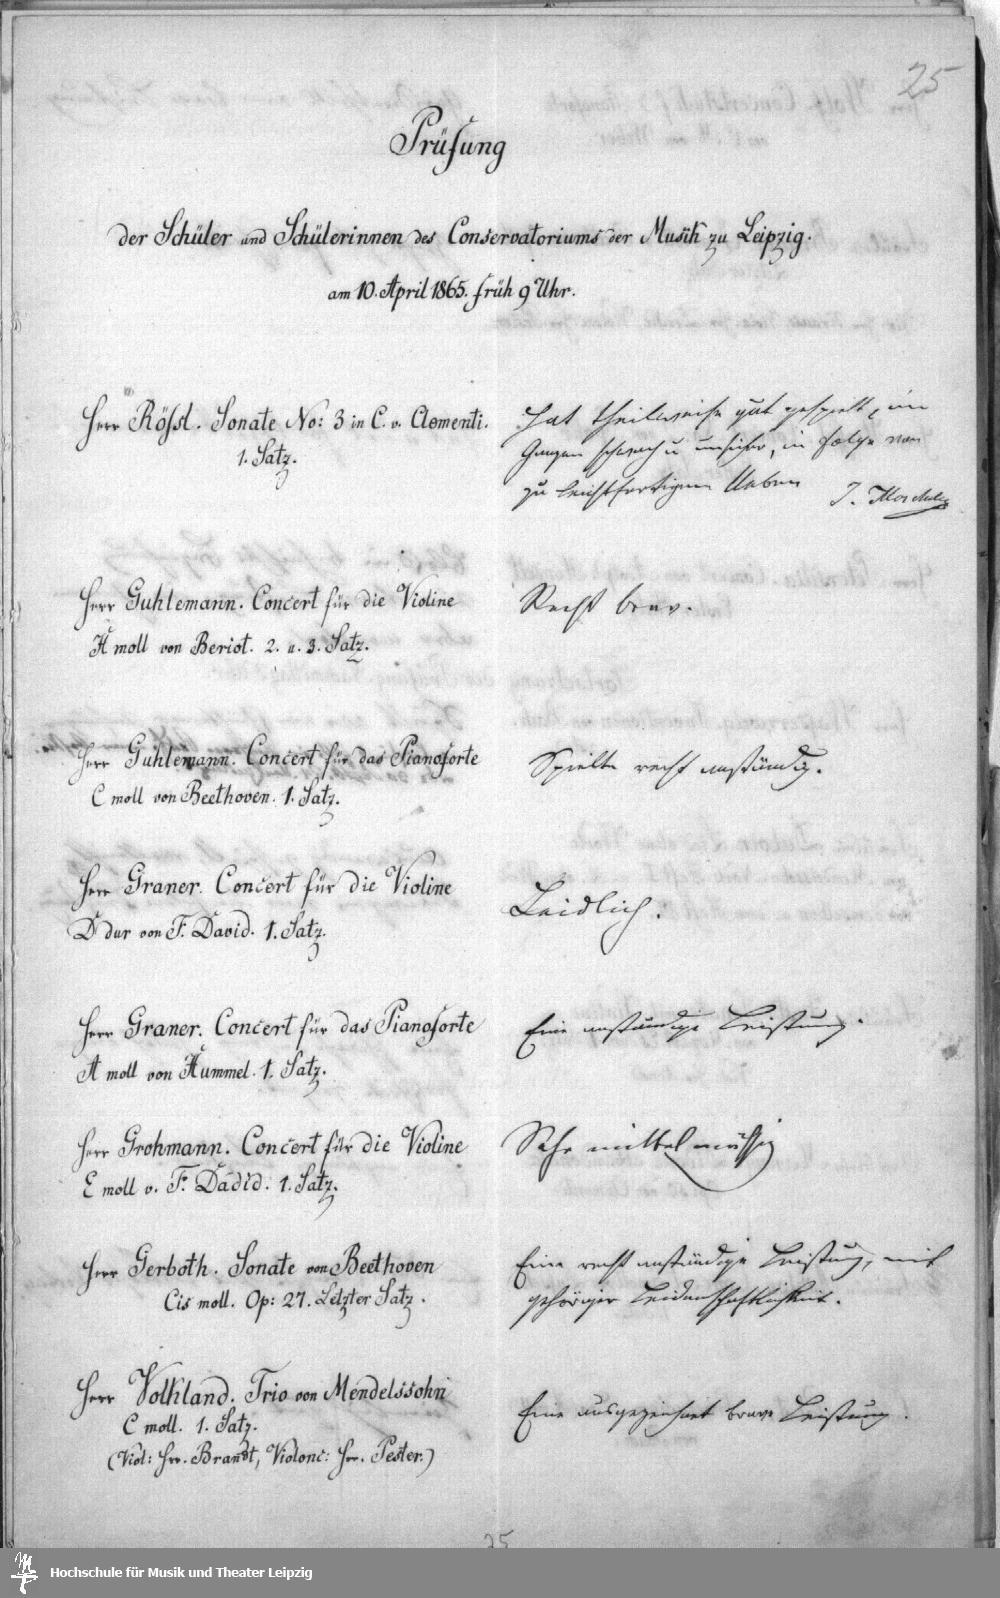 25
Prüfung
der Schüler und Schülerinnen des Conservatoriums der Musik zu Leipzig.
am 10. April 1865. früh 9 Uhr.
Herr Rößl. Sonate No: 3 in C. v. Clementi.
1. Satz.
Hat theilweise gut gespielt, im
Ganzen schwach u unsicher, in Folge von
zu leichtfertigem Ueben
J. Moscheles
Herr Guhlemann. Concert für die Violine
H moll von Beriot. 2. u. 3. Satz.
Recht brav.
Herr Guhlemann. Concert für das Pianoforte
C moll von Beethoven. 1. Satz.
Spielte recht anständig.
Herr Graner. Concert für die Violine
D dur von F. David. 1. Satz.
Leidlich.
Herr Graner. Concert für das Pianoforte
A moll von Hummel. 1. Satz.
Eine anständige Leistung.
Herr Grohmann. Concert für die Violine
E moll v. F. David. 1. Satz.
Sehr mittelmäßig
Herr Gerboth. Sonate von Beethoven
Cis moll. Op: 27. Letzter Satz.
Eine recht anständige Leistung, mit
gehöriger Leidenschaftlichkeit.
Herr Volkland. Trio von Mendelssohn
C moll. 1. Satz.
(Viol: Hrr. Brandt, Violonc: Hrr. Pester.)
Eine ausgezeichnet brave Leistung.
25
Hochschule für Musik und Theater Leipzig